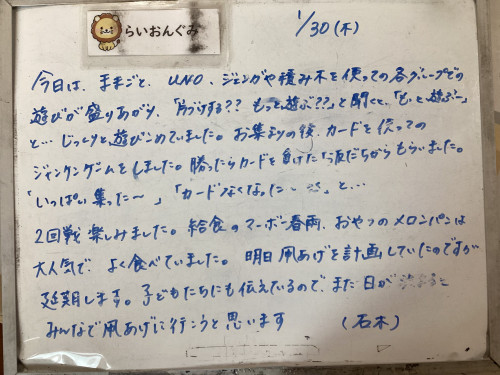 らいおんぐみ
1/30(木)
今日は、ままごと、UNO、ジェンガや積み木を使っての各グループでの
遊びが盛りあがり、「片づけする?? もっと遊ぶ??」と聞くと、「もっと遊ぶー」
と… じっくりと遊びこめていました。お集まりの後、カードを使っての
ジャンケンゲームをしました。勝ったらカードを負けたお友だちからもらいました。
「いっぱい集った〜」「カードなくなった〜」と…
2回戦 楽しみました。給食のマーボー春雨、おやつのメロンパンは
大人気で、よく食べていました。明日 凧あげを計画していたのですが
延期します。子どもたちにも伝えているので、また日が
みんなで凧あげに行こうと思います (石木)